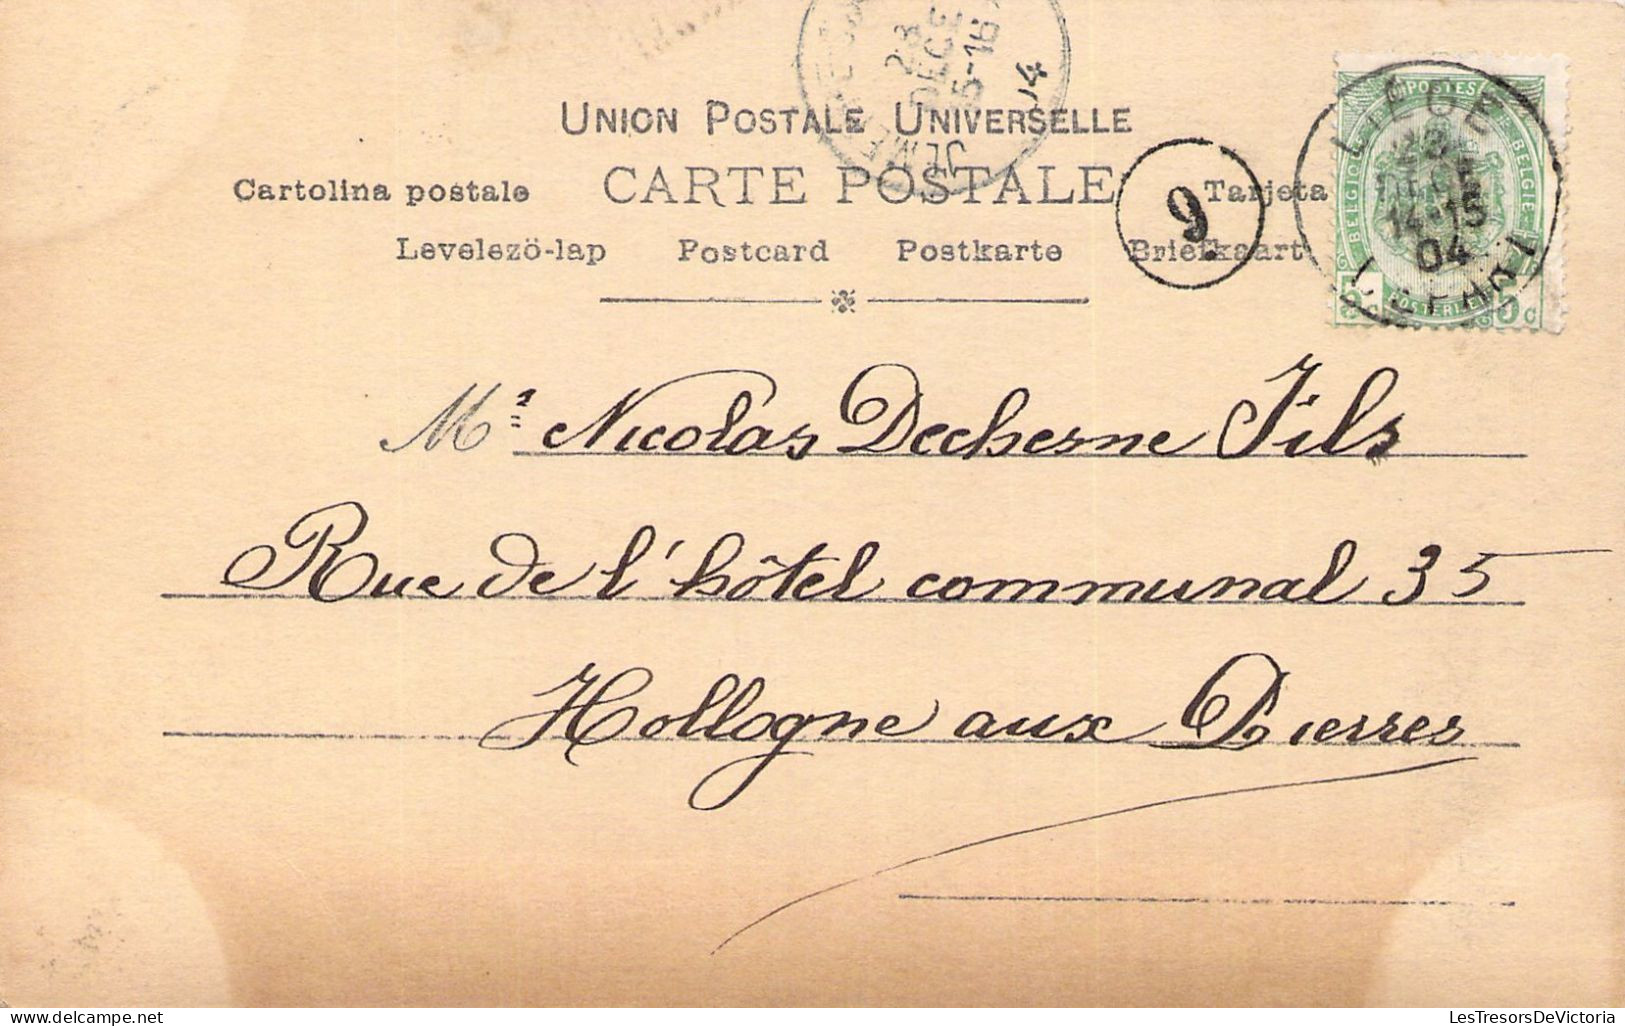 UNION POSTALE UNIVERSELLE
CARTE POSTALE
Cartolina postale
Tarjeta
Levelező-lap Postcard Postkarte Briefkaart
JEMEPPE
23
DECE
5-16
14
9
LIEGE
23
DECE
14-15
04
POSTES
BELGIQUE
BELGIE
POSTERIJEN
5c
5c
Mr Nicolas Dechesne Fils
Rue de l'hôtel communal 35
Hollogne aux Pierres
LesTresorsDeVictoria